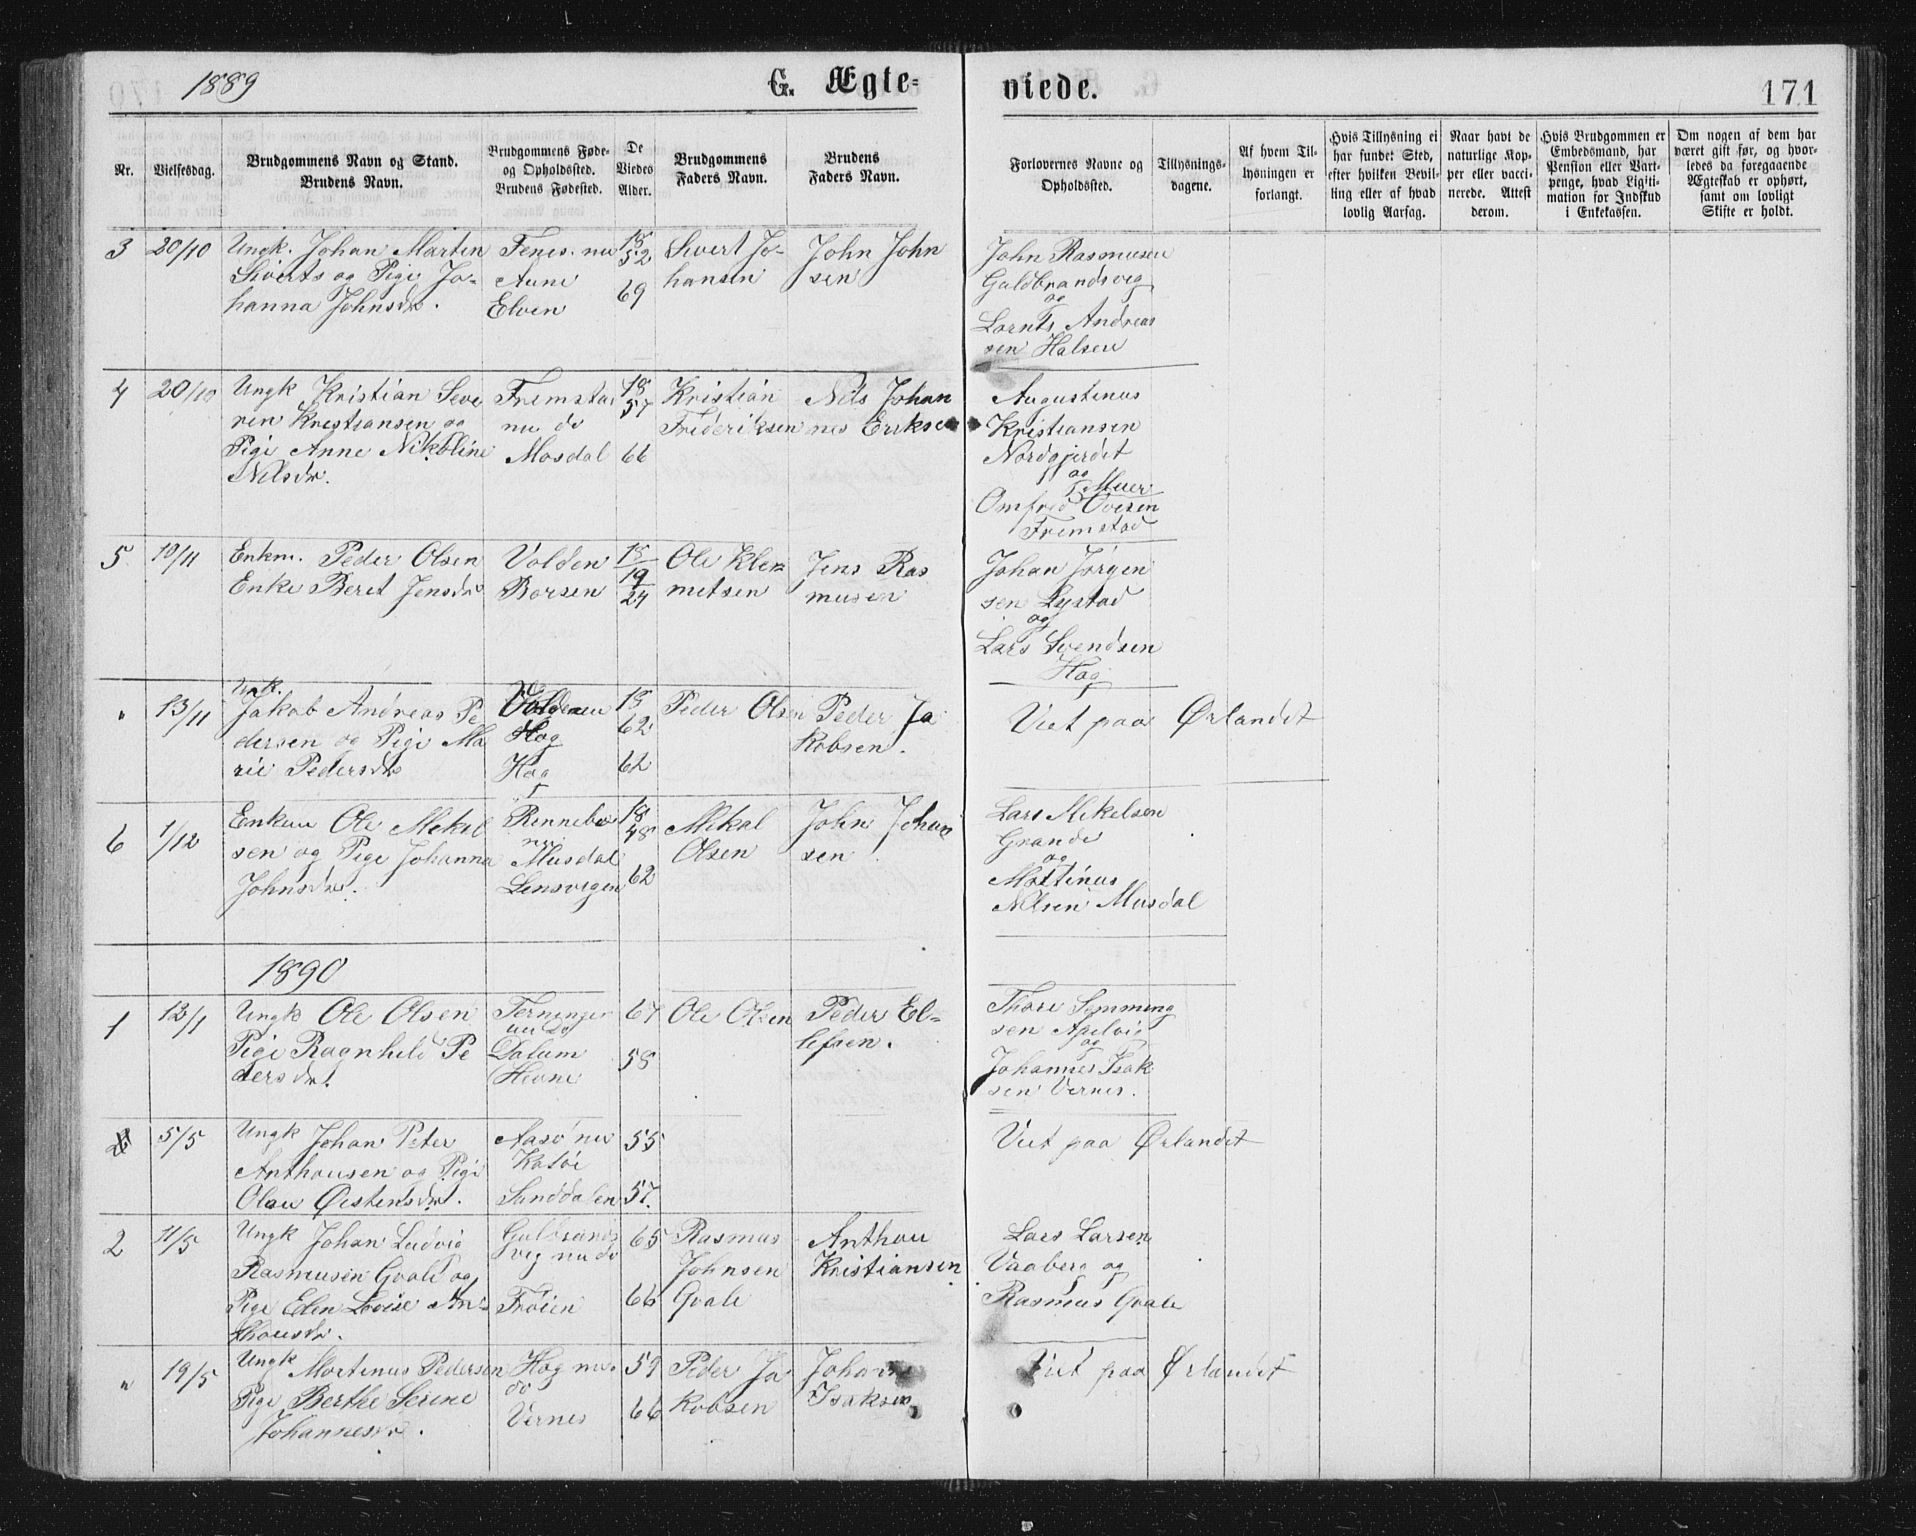 1889
G. Ægte-
viede.
171
Nr.
Vielsesdag.
Brudgommens Navn og Stand.
Brudens Navn.
Brudgommens Føde-
og Opholdssted.
Brudens Fødested.
De
Viedes
Alder.
Brudgommens
Faders Navn.
Brudens
Faders Navn.
Forlovernes Navne og
Opholdssted.
Tillysnings-
dagene.
Af hvem Til-
lysningen er
forlangt.
Hvis Tillysning ei
har fundet Sted,
efter hvilken Bevil-
ling eller af hvad
lovlig Aarsag.
Naar havt de
naturlige Kop-
per eller vacci-
nerede. Attest
derom.
Hvis Brudgommen er
Embedsmand, har
Pension eller Vart-
penge, hvad Ligiti-
mation for Indskud
i Enkekassen.
Om nogen af dem har
været gift før, og hvor-
ledes da foregaaende
Ægteskab er ophørt,
samt om lovligt
Skifte er holdt.
3
20/10
Ungk. Johan Martin
Siverts og Pige Jo-
hanna Johnsdr.
Fenes. nu
Aune
Elven
18
52
69
Sivert Jo-
hansen
John John
sen
John Rasmusen
Guldbrandsvig
og
Lornts Andreas
sen Halsen
4
20/10
Ungk Kristian Seve
rin Kristiansen og
Pige Anne Nikoline
Nelsdr.
Fremstad
nu do
Mosdal
18
57
66
Kristian
Frederiksen
Nels Johan
nes Eriksen
Augustinus
Kristiansen
Nordgjerdet
og
Omfred Ovesen
Fremstad
5
10/11
Enkm. Peder Olsen
Enke Beret Jensdr
Volden
Borsen
18
19
24
Ole Klem-
metsen
Jens Ras
musen
Johan Jörgen
sen Lystad
og
Lars Svendsen
Hog
"
13/11
Ungk.
Jakob Andreas Pe
dersen og Pige Ma
rie Pedersdr
Hog
Hog
18
62
62
Peder Olsen
Peder Ja
kobsen.
Viet paa Ørlandet
6
1/12
Enkm Ole Mekal
sen og Pige Johanna
Johnsdr.
Rennebo
nu
Musdal
Lensvigen
18
48
62
Mekal
Olsen
John Johan
sen
Lars Mekelsen
Grande
og
Martinus
Nelsen Musdal
1890
1
12/1
Ungk Ole Olsen
Pige Ragnhild Pe
dersdr.
Terningen
nu do
Dalum
Hevne
67
58
Ole Olsen
Peder El-
lefsen.
Thore Semming
sen Apelvig
og
Johannes Isak
sen Vernes.
5/5
Ungk Johan Peter
Anthonsen og Pige
Olau Øistensdr.
Aasö nu
Katöe
Sanddalen
55
57.
Viet paa Ørlandet
2
11/5
Ungk Johan Ludvig
Rasmusen Gvale og
Pige Elen Lovise An-
thonsdr.
Gulbrands
vig nu do
Fröien
65
66
Rasmus
Johnsen
Gvale
Anthon
Kristiansen
Lars Larsen
Vaaberg og
Rasmus Gvale
"
19/5
Ungk Mortinus Pedersen
Pige Berthe Serine
Johannesdr.
Hog nu
do
Vernes
59
66
Peder Ja
kobsen
Johannes
Isaksen
Viet paa Ørlandet